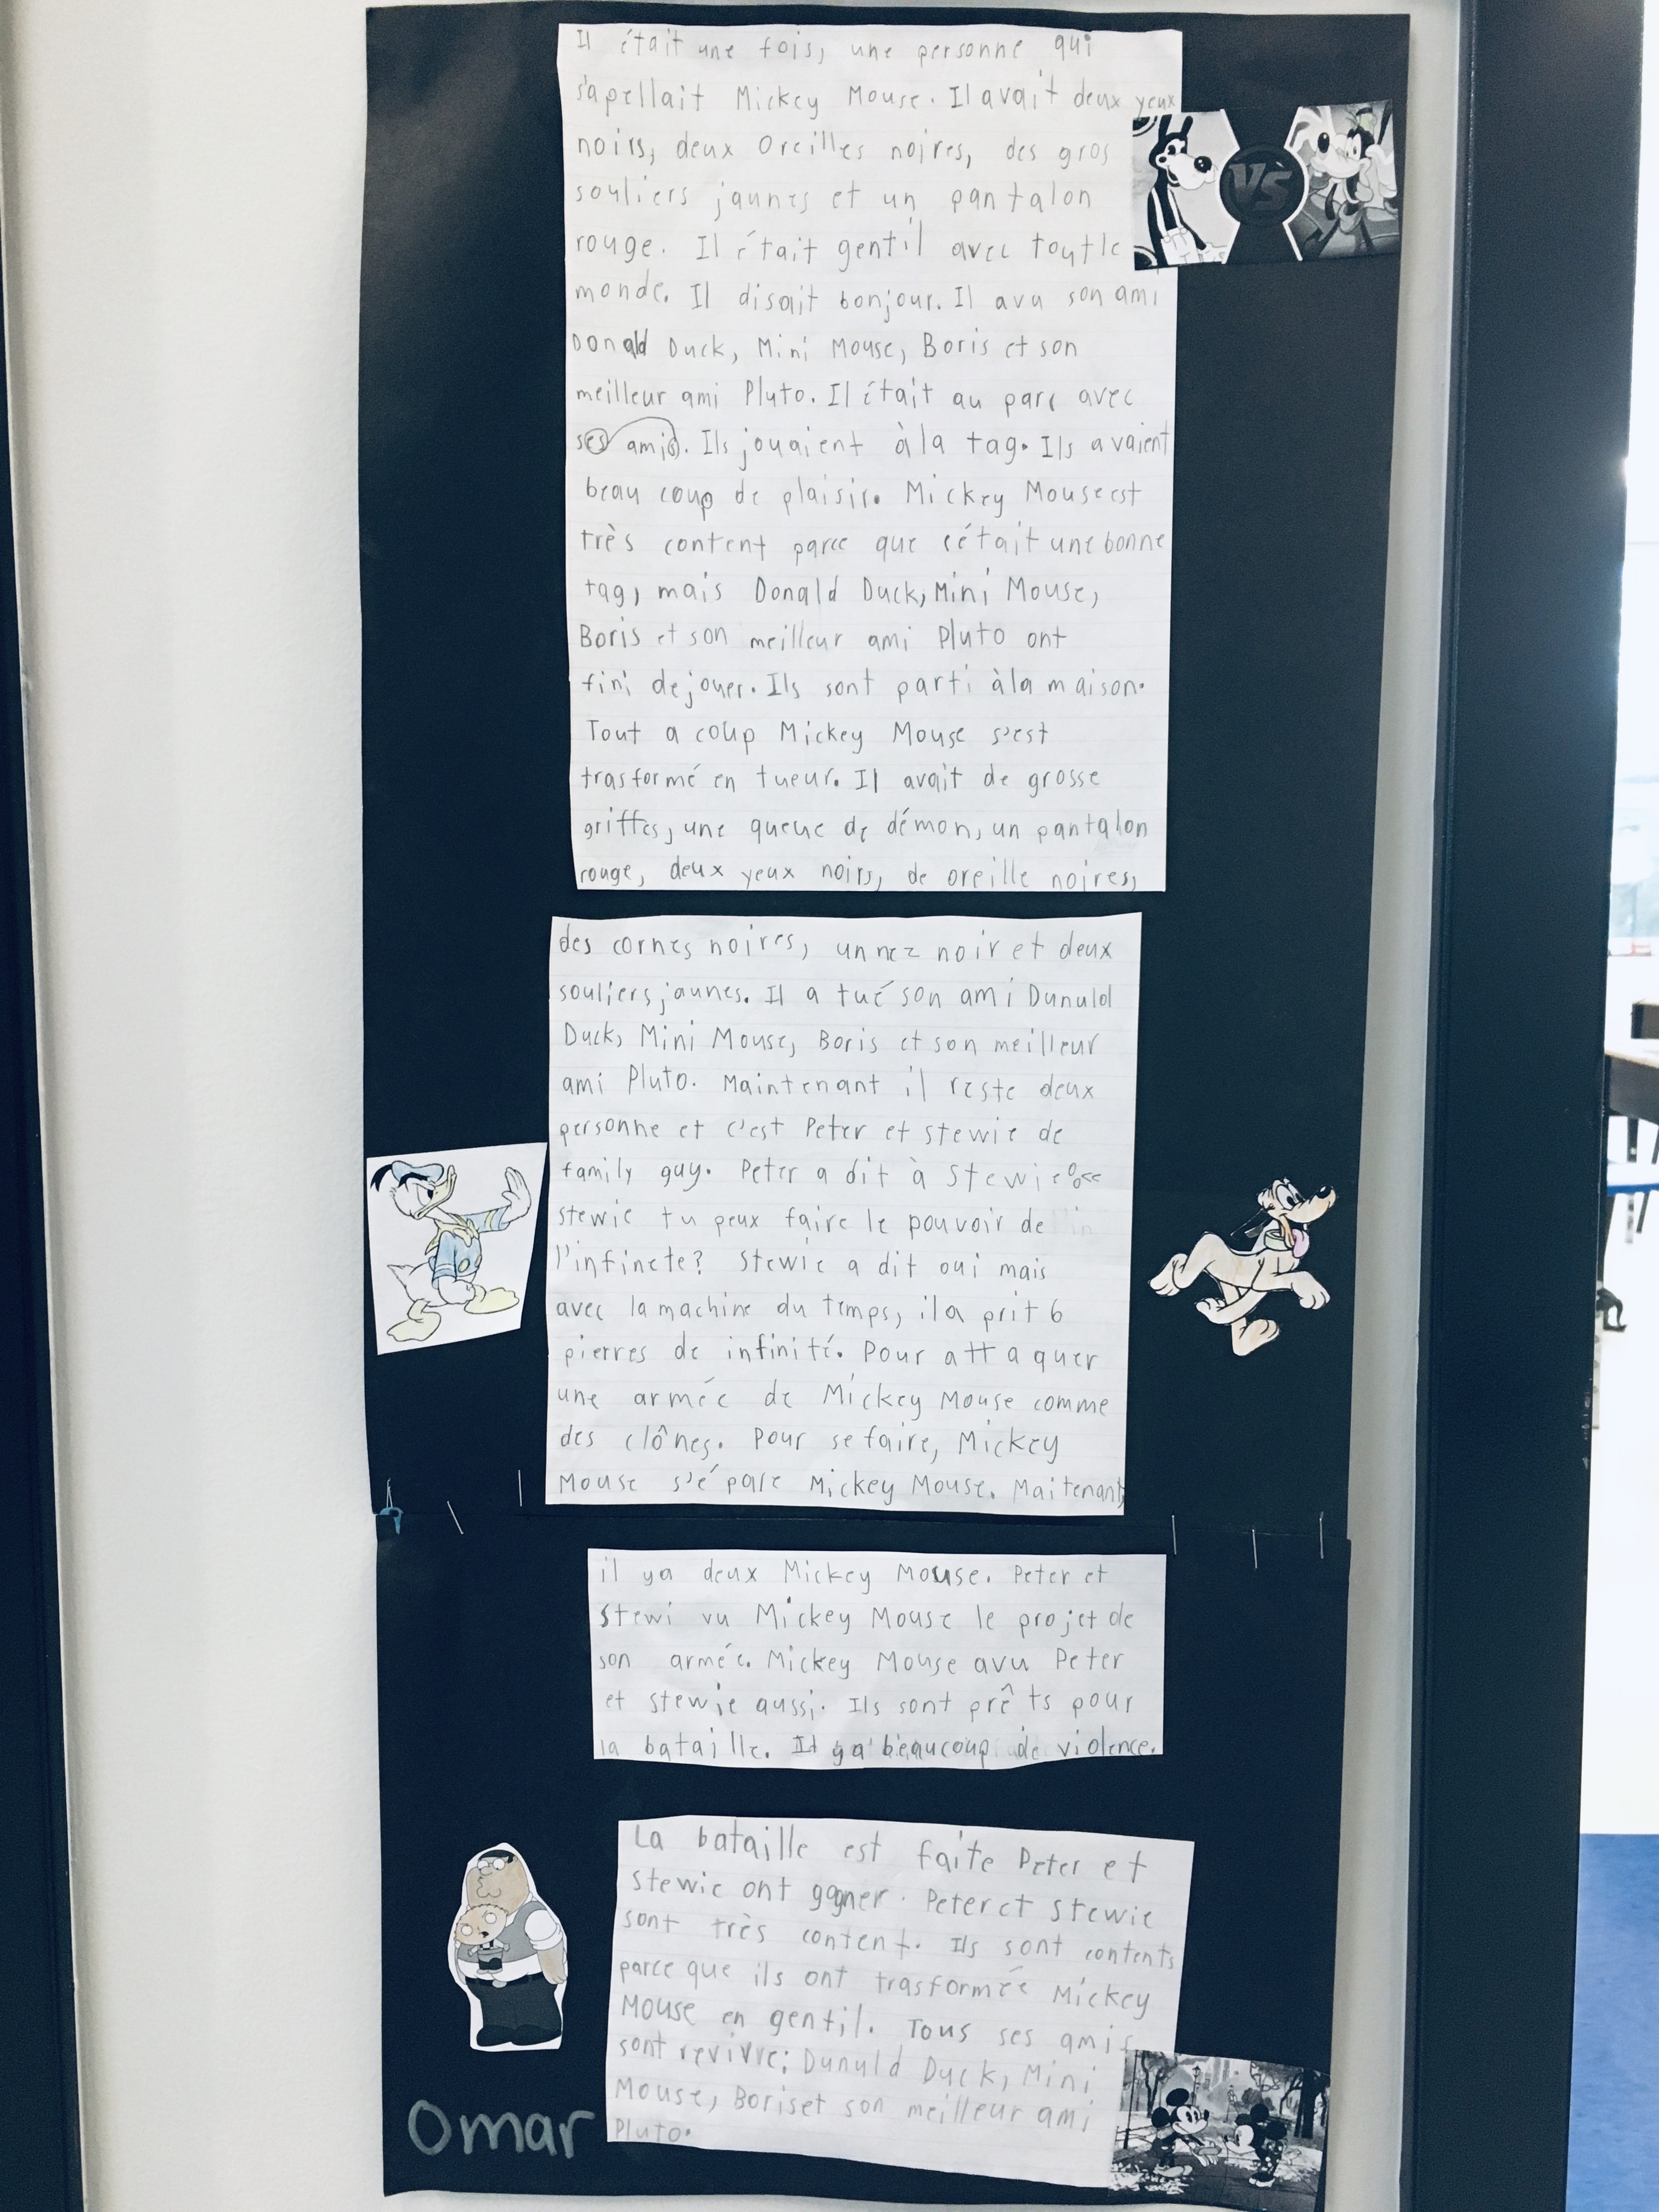 Il était une fois, une personne qui
s'apellait Mickey Mouse. Il avait deux yeux
noirs, deux Oreilles noires, des gros
souliers jaunes et un pantalon
rouge. Il était gentil avec toutle
monde. Il disait bonjour. Il avu son ami
Donald Duck, Mini Mouse, Boris et son
meilleur ami Pluto. Il était au parc avec
ses amis. Ils jouaient à la tag. Ils avaient
beau coup de plaisir. Mickey Mouse est
très content parce que c'était une bonne
tag, mais Donald Duck, Mini Mouse,
Boris et son meilleur ami Pluto ont
fini de jouer. Ils sont parti à la maison.
Tout a coup Mickey Mouse s'est
trasformé en tueur. Il avait de grosse
griffes, une queue de démon, un pantalon
rouge, deux yeux noirs, de oreille noires,
des cornes noires, un nez noir et deux
souliers jaunes. Il a tué son ami Dunuld
Duck, Mini Mouse, Boris et son meilleur
ami Pluto. Maintenant il reste deux
personne et c'est Peter et stewie de
family guy. Peter a dit à stewie:<<
stewie tu peux faire le pouvoir de
l'infinete? Stewie a dit oui mais
avec la machine du temps, il a prit 6
pierres de infinité. Pour attaquer
une armée de Mickey Mouse comme
des clônes. Pour se faire, Mickey
Mouse s'épare Mickey Mouse. Maitenant,
il ya deux Mickey Mouse. Peter et
stewi vu Mickey Mouse le projet de
son armée. Mickey Mouse avu Peter
et stewie aussi. Ils sont prêts pour
la bataille. Il ya beaucoup de violence.
La bataille est faite Peter et
stewie ont gagner. Peter et stewie
sont très content. Ils sont contents
parce que ils ont trasformée Mickey
Mouse en gentil. Tous ses amis
sont revivre: Dunuld Duck, Mini
Mouse, Boris et son meilleur ami
Pluto.
VS
Omar